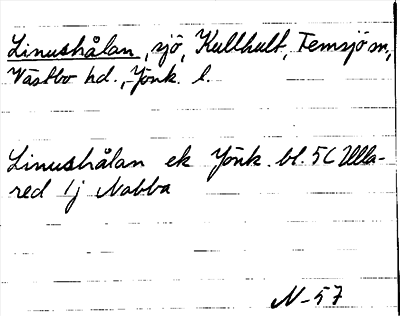 Linushålan, sjö, Kullhult, Femsjö sn,
Västbo hd., Jönk. l.
Linushålan ek Jönk. bl. 56 Ulla-
red 1j Nabba
N-57